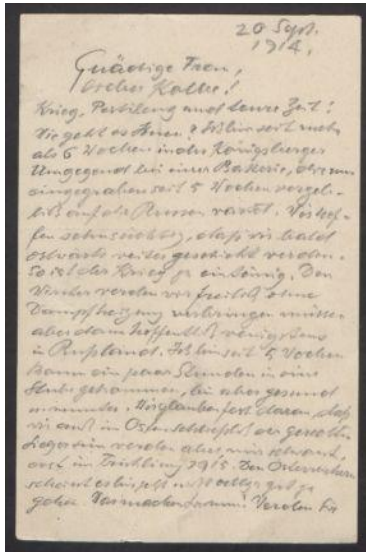 20 Sept.
1914.
Gnädige Frau,
lieber Kolbe!
Krieg, Pestilenz und teure Zeit!
Wie geht es Ihnen? Ich bin seit mehr
als 6 Wochen in der Königsberger
Umgegend bei einer Batterie, die nun
eingegraben seit 5 Wochen vergeb-
lich auf die Russen wartet. Wir hof-
fen sehnsüchtig, daß wir bald
ostwärts weiter geschickt werden.
So ist der Krieg zu eintönig. Den
Winter werden wir freilich ohne
Dampfheizung verbringen müssen
aber dann hoffentlich wenigstens
in Rußland. Ich bin seit 5 Wochen
kaum ein paar Stunden in eine
Stube gekommen, bin aber gesund
und munter. Wir glauben fest daran, daß
wir auch im Osten schließlich die
Sieger sein werden aber, mir schwant,
erst im Frühling 1915. Den Österreichern
scheint es bis jetzt nicht gut zu
gehen. Was machen Werden Sie